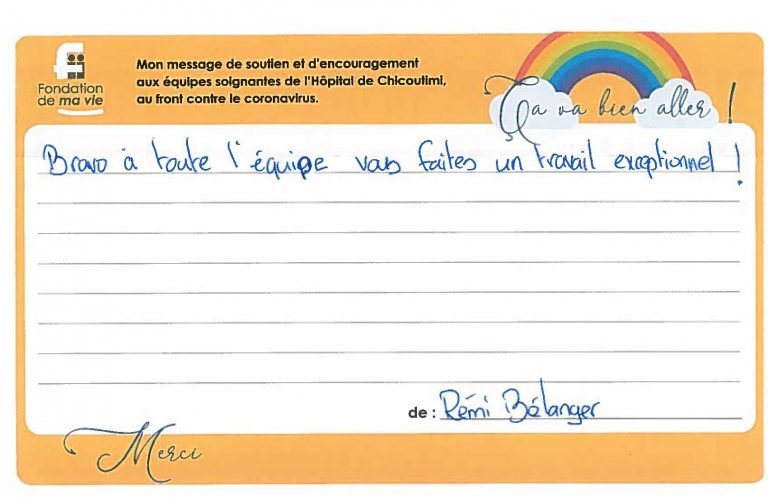 Fondation
de ma vie
Mon message de soutien et d'encouragement
aux équipes soignantes de l'Hôpital de Chicoutimi,
au front contre le coronavirus.
Ça va bien aller !
Bravo à toute l'équipe vous faites un travail exceptionnel !
de : Rémi Bélanger
Merci